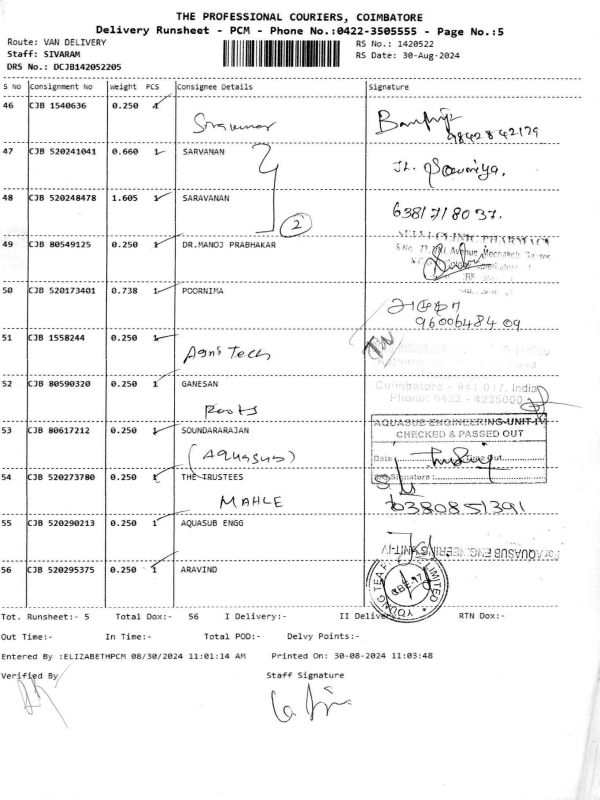 THE PROFESSIONAL COURIERS, COIMBATORE
Delivery Runsheet - PCM - Phone No.:0422-3505555 - Page No.:5
Route: VAN DELIVERY
RS No.: 1420522
Staff: SIVARAM
RS Date: 30-Aug-2024
DRS No.: DCJB142052205
S No Consignment No Weight PCS Consignee Details Signature
46 CJB 1540636 0.250 1
9842842179
47 CJB 520241041 0.660 1 SARVANAN
Sowmiya.
48 CJB 520248478 1.605 1 SARAVANAN
6381718037.
2
49 CJB 80549125 0.250 1 DR.MANOJ PRABHAKAR
PHARMACY
50 CJB 520173401 0.738 1 POORNIMA
9600648409
51 CJB 1558244 0.250 1
Agri Tech
52 CJB 80590320 0.250 1 GANESAN
Coimbatore - 641 017, India
Phone: 0422 - 4235000
Roots
53 CJB 80617212 0.250 1 SOUNDARARAJAN
AQUASUB ENGINEERING-UNIT-IV
CHECKED & PASSED OUT
(AQUASUB)
Date Time Out
54 CJB 520273780 0.250 1 THE TRUSTEES
Signature:
MAHLE
55 CJB 520290213 0.250 1 AQUASUB ENGG
For AQUASUB ENGINEERING UNIT-IV
56 CJB 520295375 0.250 1 ARAVIND
YOUNG TEA LIMITED
CBE-17
Tot. Runsheet:- 5 Total Dox:- 56 I Delivery:- II Delivery:- RTN Dox:-
Out Time:- In Time:- Total POD:- Delvy Points:-
Entered By :ELIZABETHPCM 08/30/2024 11:01:14 AM Printed On: 30-08-2024 11:03:48
Verified By Staff Signature